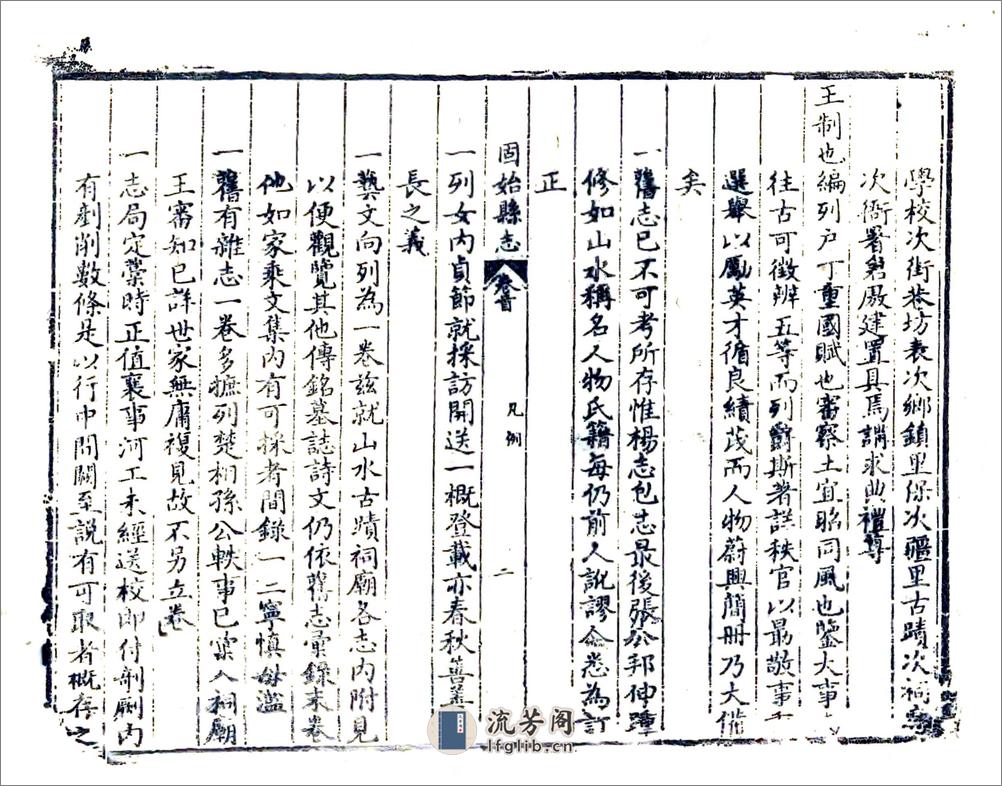 學校次街巷坊表次鄉鎮里保次疆里古蹟次祠
次衙署倉廒建置具焉講求典禮尊
王制也編列戶丁重國賦也審察土宜昭同風也鑒大事
往古可徵辨五等而列爵斯著詳秩官以最敬事
選舉以勵英才循良績茂而人物蔚興簡冊乃大備
矣
一舊志已不可考所存惟楊志包志最後張公邦伸踵
修如山水稱名人物氏籍每仍前人訛謬僉悉為訂
正
固始縣志 卷首 凡例 二
一列女內貞節就採訪開送一概登載亦春秋善善
長之義
一藝文向列為一卷茲就山水古蹟祠廟各志內附見
以便觀覽其他傳銘墓誌詩文仍依舊志彙錄末卷
他如家乘文集內有可採者間錄一二寧慎毋濫
一舊有雜志一卷多摭列楚相孫公軼事已彙入祠廟
王審知已詳世家無庸複見故不另立卷
一志局定藁時正值襄事河工未經送校即付剞劂內
有剗削數條是以行中間闕至說有可取者概存之
流芳阁
lfglib.cn